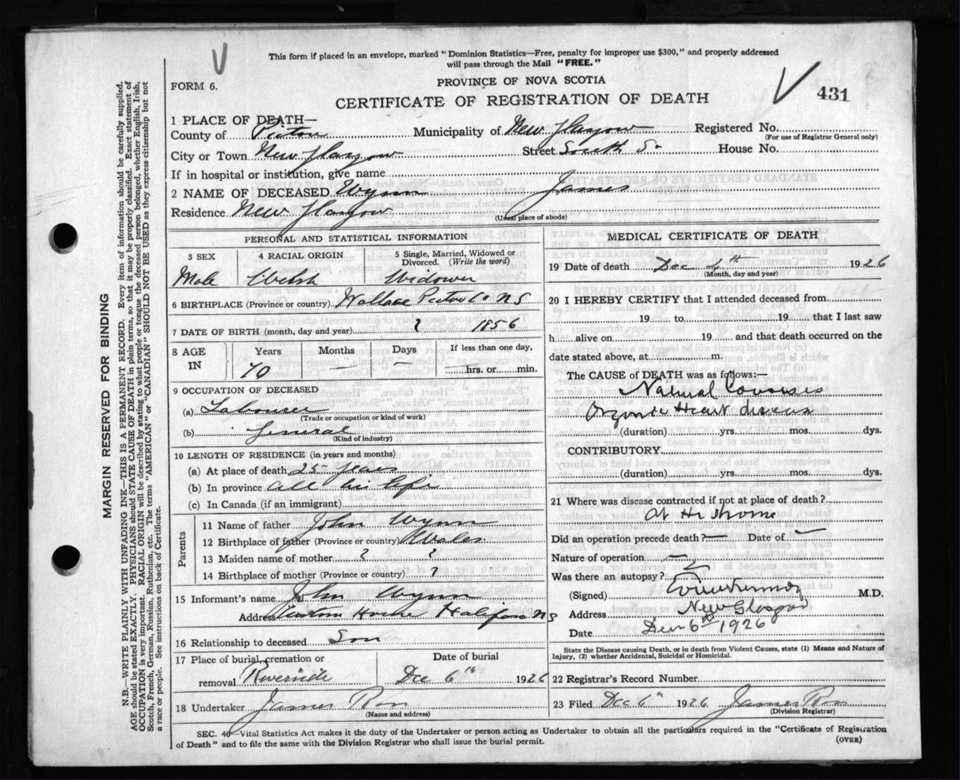 This form if placed in an envelope, marked "Dominion Statistics—Free, penalty for improper use $300," and properly addressed
will pass through the Mail "FREE."
FORM 6.
PROVINCE OF NOVA SCOTIA
CERTIFICATE OF REGISTRATION OF DEATH
431
1 PLACE OF DEATH—
County of Pictou Municipality of New Glasgow Registered No.
(For use of Registrar General only)
City or Town New Glasgow Street South St House No.
If in hospital or institution, give name
2 NAME OF DECEASED Wynn James
Residence New Glasgow
(Usual place of abode)
PERSONAL AND STATISTICAL INFORMATION
3 SEX 4 RACIAL ORIGIN 5 Single, Married, Widowed or
Divorced. (Write the word)
Male Welsh Widower
6 BIRTHPLACE (Province or country) Wallace Pictou Co NS
7 DATE OF BIRTH (month, day and year) ? 1856
8 AGE IN Years Months Days If less than one day,
70 — — hrs. or min.
9 OCCUPATION OF DECEASED
(a) Labourer
(Trade or occupation or kind of work)
(b) General
(Kind of industry)
10 LENGTH OF RESIDENCE (in years and months)
(a) At place of death 25 years
(b) In province all his life
(c) In Canada (if an immigrant)
Parents
11 Name of father John Wynn
12 Birthplace of father (Province or country) Wales
13 Maiden name of mother ? ?
14 Birthplace of mother (Province or country) ?
15 Informant's name John Wynn
Address House Halifax NS
16 Relationship to deceased Son
17 Place of burial, cremation or Date of burial
removal Riverside Dec 6th 1926
18 Undertaker James Ross
(Name and address)
MEDICAL CERTIFICATE OF DEATH
19 Date of death Dec 4th 1926
(Month, day and year)
20 I HEREBY CERTIFY that I attended deceased from
19 to 19 that I last saw
h alive on 19 and that death occurred on the
date stated above, at m.
The CAUSE of DEATH was as follows:—
Natural Causes
Organic Heart disease
(duration) yrs. mos. dys.
CONTRIBUTORY
(duration) yrs. mos. dys.
21 Where was disease contracted if not at place of death?
At his home
Did an operation precede death? — Date of —
Nature of operation —
Was there an autopsy?
(Signed) M.D.
Address New Glasgow
Date Dec 6th 1926
State the Disease causing Death, or in death from Violent Causes, state (1) Means and Nature of
Injury, (2) whether Accidental, Suicidal or Homicidal.
22 Registrar's Record Number
23 Filed Dec 6th 1926 James Ross
(Division Registrar)
SEC. 40—Vital Statistics Act makes it the duty of the Undertaker or person acting as Undertaker to obtain all the particulars required in the "Certificate of Registration
of Death" and to file the same with the Division Registrar who shall issue the burial permit.
(OVER)
MARGIN RESERVED FOR BINDING
N.B.—WRITE PLAINLY WITH UNFADING INK—THIS IS A PERMANENT RECORD. Every item of information should be carefully supplied.
AGE should be stated EXACTLY. PHYSICIANS should STATE CAUSE OF DEATH in plain terms, so that it may be properly classified. Exact statement of
OCCUPATION is very important. RACIAL ORIGIN will be described by stating to what people or tongue the deceased person belonged, whether English, Irish,
Scotch, French, German, Russian, Ruthenian, etc. The terms "AMERICAN" or "CANADIAN" SHOULD NOT BE USED as they express citizenship but not
a race or people. See instructions on back of Certificate.